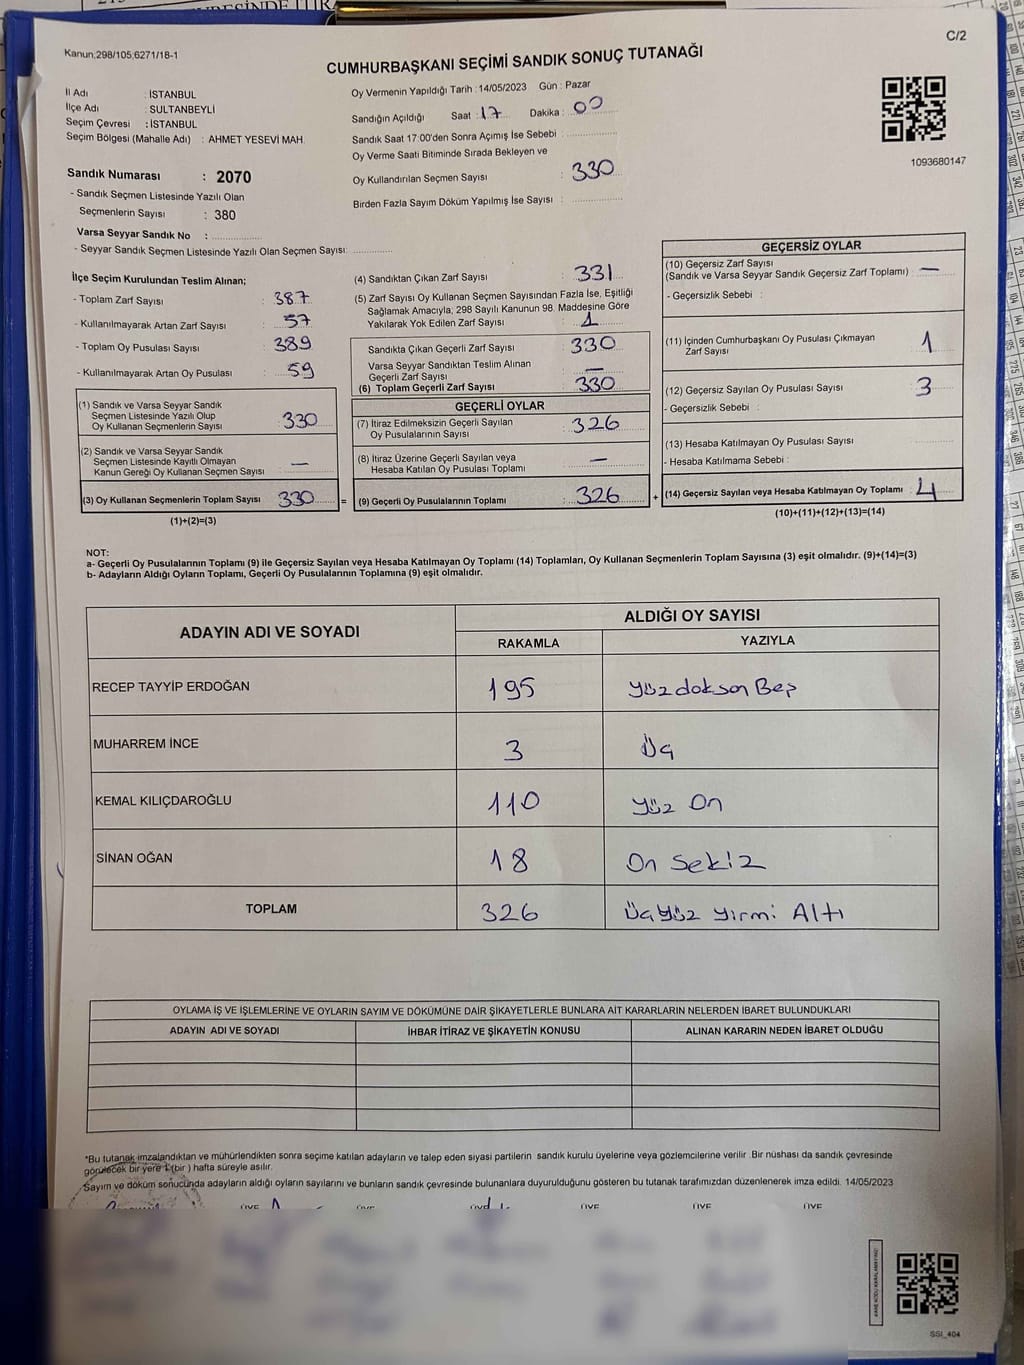 C/2
Kanun:298/105;6271/18-1
CUMHURBAŞKANI SEÇİMİ SANDIK SONUÇ TUTANAĞI
İl Adı : İSTANBUL
İlçe Adı : SULTANBEYLİ
Seçim Çevresi : İSTANBUL
Seçim Bölgesi (Mahalle Adı) : AHMET YESEVİ MAH.
Oy Vermenin Yapıldığı Tarih : 14/05/2023 Gün : Pazar
Sandığın Açıldığı Saat : 17 Dakika : 00
Sandık Saat 17:00'den Sonra Açımış İse Sebebi :
Oy Verme Saati Bitiminde Sırada Bekleyen ve
Oy Kullandırılan Seçmen Sayısı : 330
Birden Fazla Sayım Döküm Yapılmış İse Sayısı :
1093680147
Sandık Numarası : 2070
- Sandık Seçmen Listesinde Yazılı Olan
Seçmenlerin Sayısı : 380
Varsa Seyyar Sandık No :
- Seyyar Sandık Seçmen Listesinde Yazılı Olan Seçmen Sayısı:
İlçe Seçim Kurulundan Teslim Alınan;
- Toplam Zarf Sayısı : 387
- Kullanılmayarak Artan Zarf Sayısı : 57
- Toplam Oy Pusulası Sayısı : 389
- Kullanılmayarak Artan Oy Pusulası : 59
(4) Sandıktan Çıkan Zarf Sayısı : 331
(5) Zarf Sayısı Oy Kullanan Seçmen Sayısından Fazla İse, Eşitliği
Sağlamak Amacıyla, 298 Sayılı Kanunun 98. Maddesine Göre
Yakılarak Yok Edilen Zarf Sayısı : 1
Sandıkta Çıkan Geçerli Zarf Sayısı : 330
Varsa Seyyar Sandıktan Teslim Alınan
Geçerli Zarf Sayısı : —
(6) Toplam Geçerli Zarf Sayısı : 330
(1) Sandık ve Varsa Seyyar Sandık
Seçmen Listesinde Yazılı Olup
Oy Kullanan Seçmenlerin Sayısı : 330
(2) Sandık ve Varsa Seyyar Sandık
Seçmen Listesinde Kayıtlı Olmayan
Kanun Gereği Oy Kullanan Seçmen Sayısı : —
(3) Oy Kullanan Seçmenlerin Toplam Sayısı : 330 =
(1)+(2)=(3)
GEÇERLİ OYLAR
(7) İtiraz Edilmeksizin Geçerli Sayılan
Oy Pusulalarının Sayısı : 326
(8) İtiraz Üzerine Geçerli Sayılan veya
Hesaba Katılan Oy Pusulası Toplamı : —
(9) Geçerli Oy Pusulalarının Toplamı : 326 +
GEÇERSİZ OYLAR
(10) Geçersiz Zarf Sayısı
(Sandık ve Varsa Seyyar Sandık Geçersiz Zarf Toplamı) : —
- Geçersizlik Sebebi :
(11) İçinden Cumhurbaşkanı Oy Pusulası Çıkmayan
Zarf Sayısı : 1
(12) Geçersiz Sayılan Oy Pusulası Sayısı : 3
- Geçersizlik Sebebi :
(13) Hesaba Katılmayan Oy Pusulası Sayısı
- Hesaba Katılmama Sebebi :
(14) Geçersiz Sayılan veya Hesaba Katılmayan Oy Toplamı : 4
(10)+(11)+(12)+(13)=(14)
NOT:
a- Geçerli Oy Pusulalarının Toplamı (9) ile Geçersiz Sayılan veya Hesaba Katılmayan Oy Toplamı (14) Toplamları, Oy Kullanan Seçmenlerin Toplam Sayısına (3) eşit olmalıdır. (9)+(14)=(3)
b- Adayların Aldığı Oyların Toplamı, Geçerli Oy Pusulalarının Toplamına (9) eşit olmalıdır.
ADAYIN ADI VE SOYADI
ALDIĞI OY SAYISI
RAKAMLA YAZIYLA
RECEP TAYYİP ERDOĞAN 195 Yüzdoksan Beş
MUHARREM İNCE 3 Üç
KEMAL KILIÇDAROĞLU 110 Yüz On
SİNAN OĞAN 18 On Sekiz
TOPLAM 326 ÜçYüz Yirmi Altı
OYLAMA İŞ VE İŞLEMLERİNE VE OYLARIN SAYIM VE DÖKÜMÜNE DAİR ŞİKAYETLERLE BUNLARA AİT KARARLARIN NELERDEN İBARET BULUNDUKLARI
ADAYIN ADI VE SOYADI İHBAR İTİRAZ VE ŞİKAYETİN KONUSU ALINAN KARARIN NEDEN İBARET OLDUĞU
*Bu tutanak imzalandıktan ve mühürlendikten sonra seçime katılan adayların ve talep eden siyasi partilerin sandık kurulu üyelerine veya gözlemcilerine verilir. Bir nüshası da sandık çevresinde
görülecek bir yere 1 (bir ) hafta süreyle asılır.
Sayım ve döküm sonucunda adayların aldığı oyların sayılarını ve bunların sandık çevresinde bulunanlara duyurulduğunu gösteren bu tutanak tarafımızdan düzenlenerek imza edildi. 14/05/2023
ÜYE ÜYE ÜYE ÜYE ÜYE
KARE KODU KARALAMAYINIZ!
SSI_404